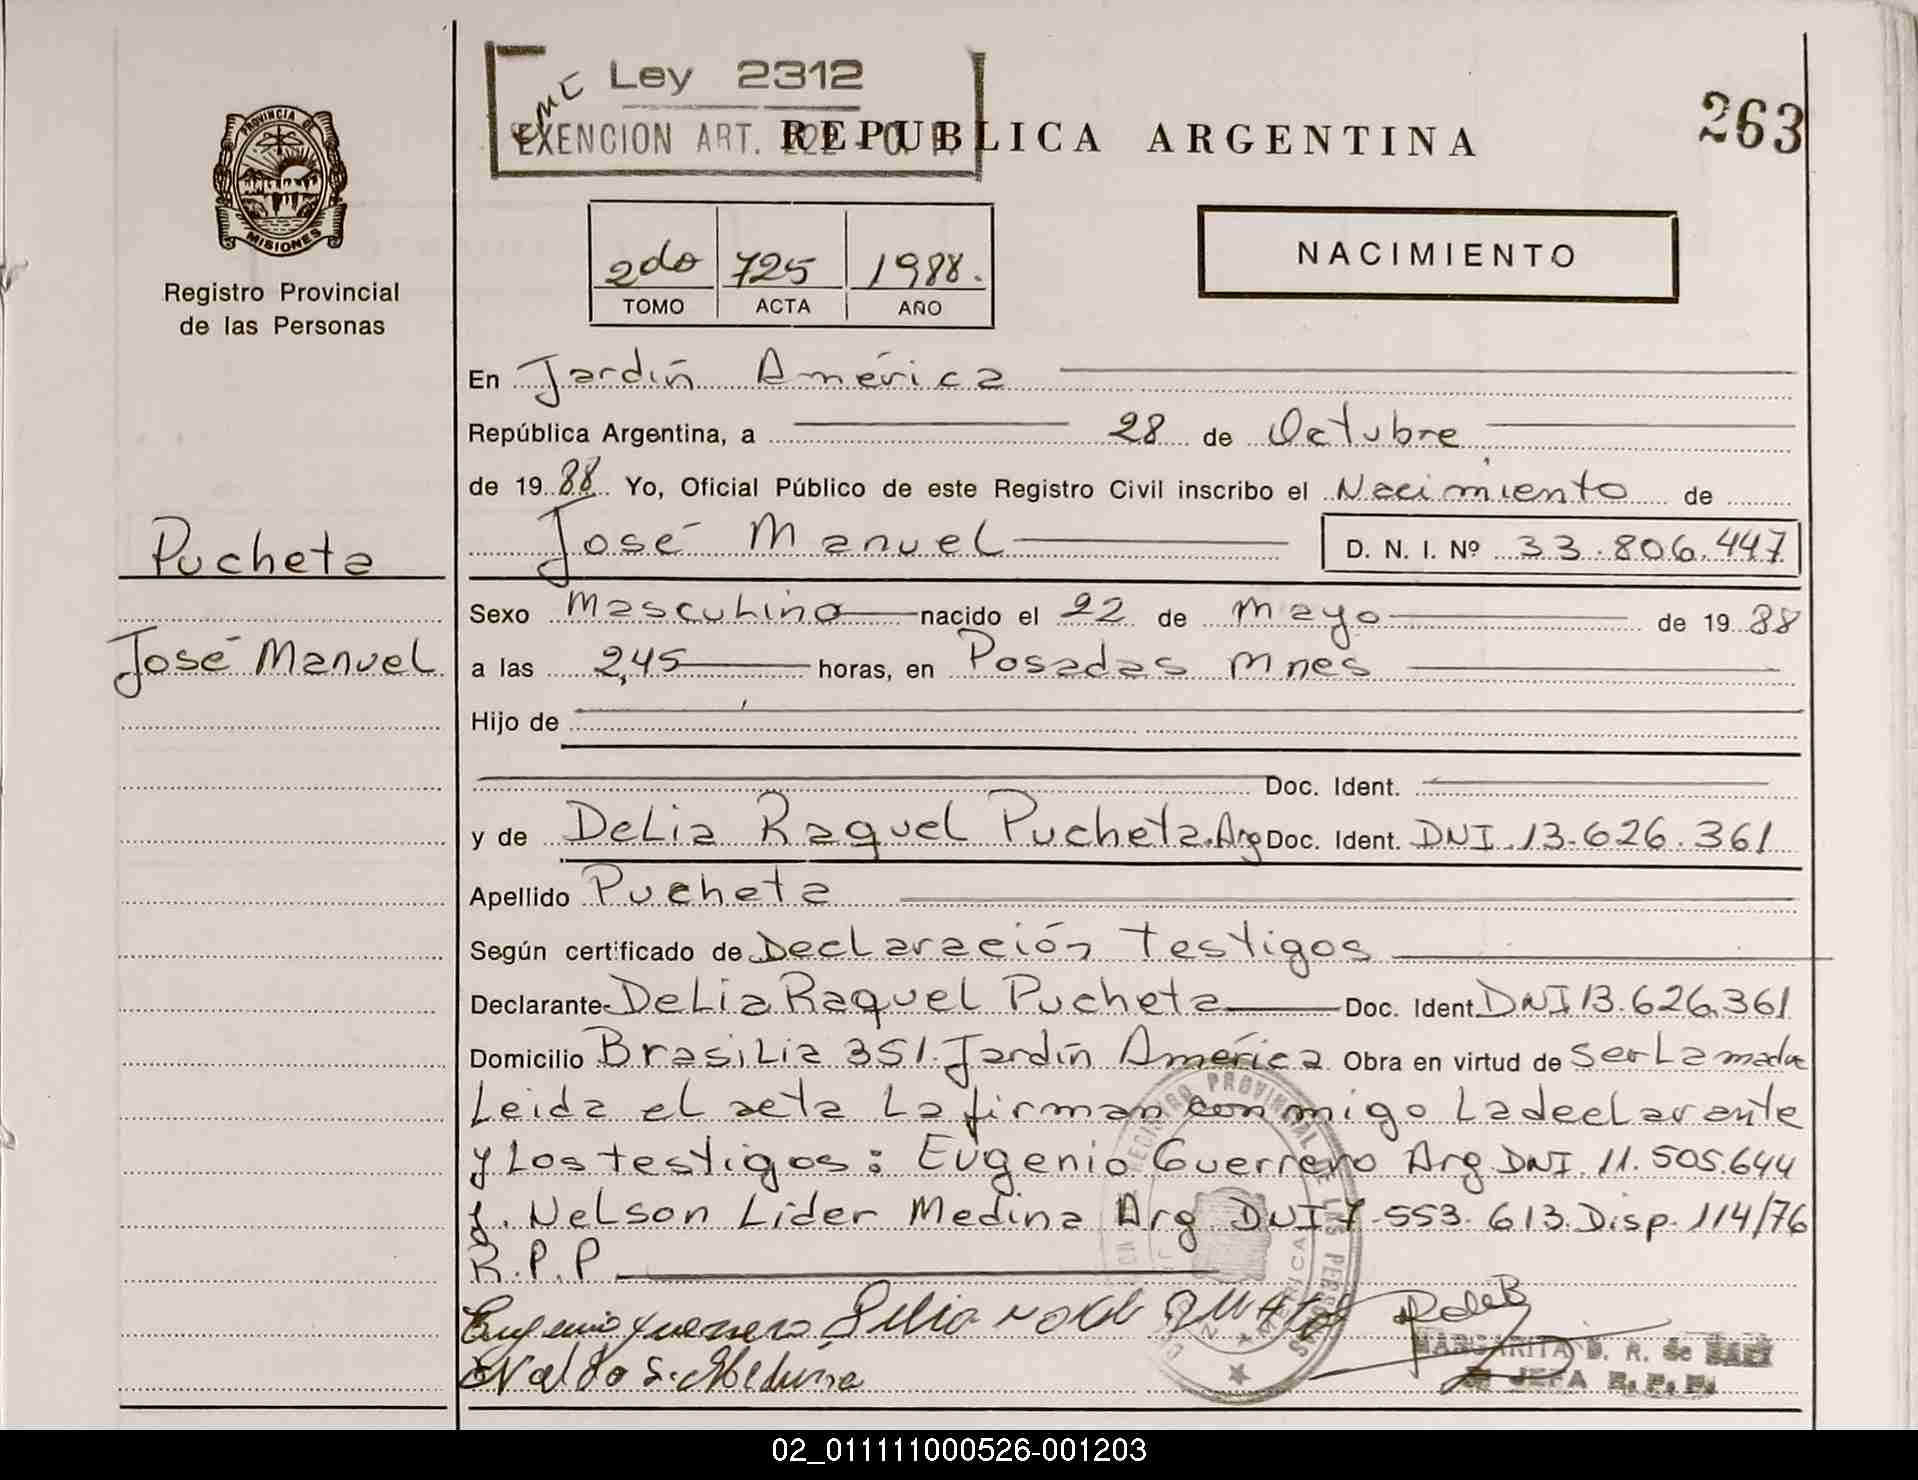 Ley 2312
EXENCION ART. 222
REPUBLICA ARGENTINA
263
PROVINCIA DE
MISIONES
Registro Provincial
de las Personas
2do 725 1988.
TOMO ACTA AÑO
NACIMIENTO
En Jardín América
República Argentina, a 28 de Octubre
de 1988 Yo, Oficial Público de este Registro Civil inscribo el Nacimiento de
José Manuel D. N. I. Nº 33.806.447
Pucheta
José Manuel
Sexo Masculino nacido el 22 de Mayo de 1988
a las 2,45 horas, en Posadas Mnes
Hijo de
Doc. Ident.
y de Delia Raquel Pucheta. Arg Doc. Ident. DNI 13.626.361
Apellido Pucheta
Según certificado de Declaración Testigos
Declarante Delia Raquel Pucheta Doc. Ident. DNI 13.626.361
Domicilio Brasilia 351. Jardín América Obra en virtud de ser La madre
Leida el acta La firman conmigo La declarante
y Los testigos: Eugenio Guerrero Arg DNI. 11.505.644
y. Nelson Lider Medina Arg DNI 7.553.613 Disp. 114/76
R.P.P
Eugenio Guerrero
Medina
REGISTRO PROVINCIAL DE LAS PERSONAS
MARGARITA D. R. de BAEZ
JEFA R. P. P.
02_011111000526-001203